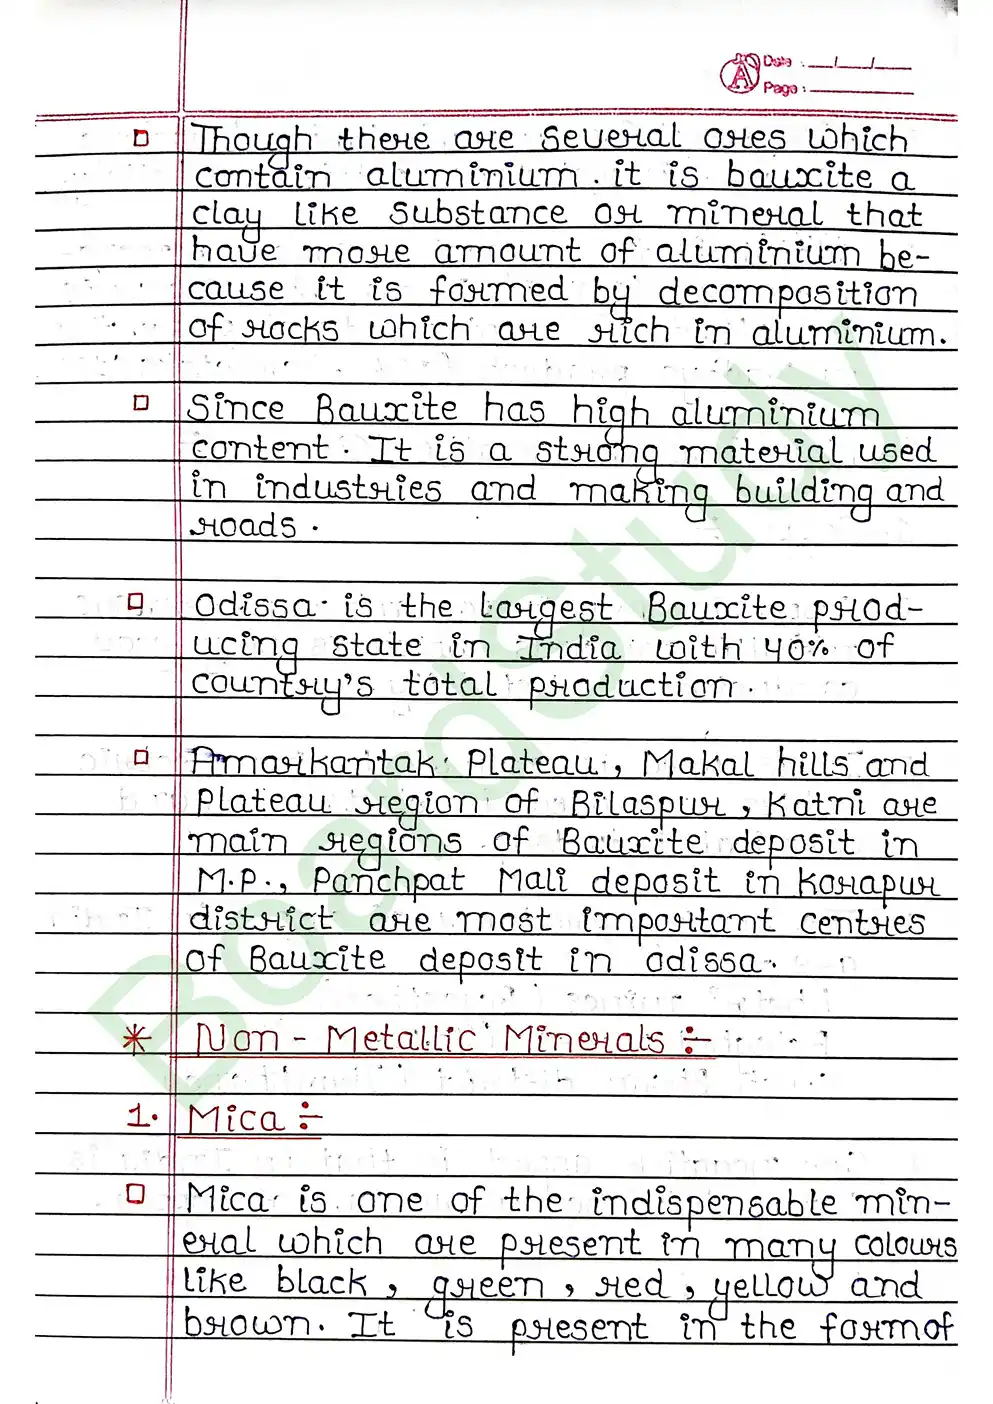 Date : __/__/__
Page :
□ Though there are several ores which
contain aluminium. it is bauxite a
clay like substance or mineral that
have more amount of aluminium be-
cause it is formed by decomposition
of rocks which are rich in aluminium.
□ Since Bauxite has high aluminium
content. It is a strong material used
in industries and making building and
roads.
□ Odissa is the largest Bauxite prod-
ucing state in India with 40% of
country's total production.
□ Amarkantak Plateau, Makal hills and
Plateau region of Bilaspur, Katni are
main regions of Bauxite deposit in
M.P., Panchpat Mali deposit in Korapur
district are most important centres
of Bauxite deposit in odissa.
* Non-Metallic Minerals ÷
1. Mica ÷
□ Mica is one of the indispensable min-
eral which are present in many colours
like black, green, red, yellow and
brown. It is present in the form of
BoardStudy